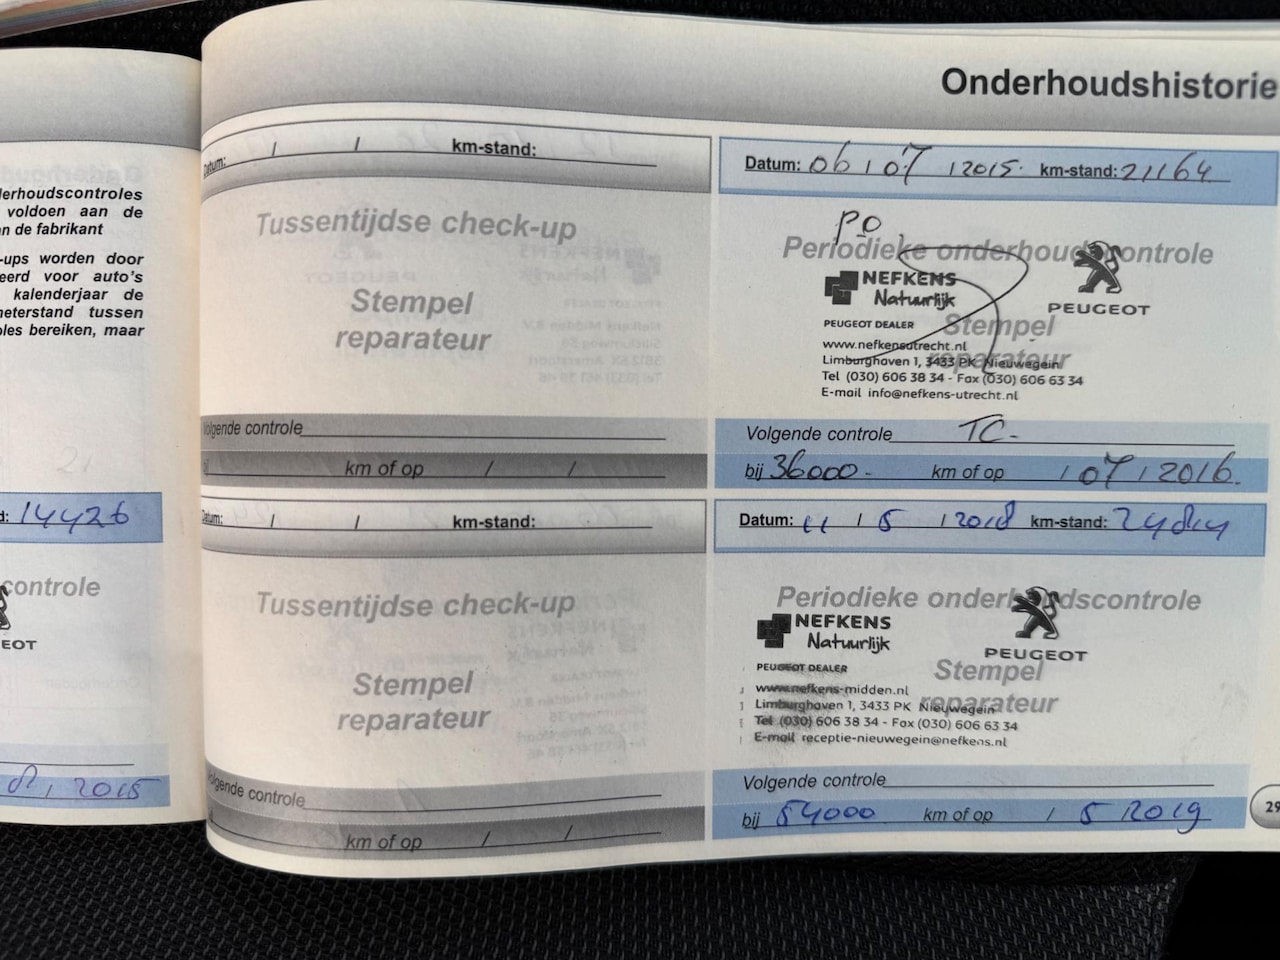 Onderhoudshistorie
derhoudscontroles
voldoen aan de
an de fabrikant
-ups worden door
eerd voor auto's
kalenderjaar de
neterstand tussen
oles bereiken, maar
d: 14426
controle
EOT
2015
Datum: / / km-stand:
Tussentijdse check-up
Stempel
reparateur
Volgende controle
km of op / /
Datum: 06 / 07 / 2015. km-stand: 21164
PO
Periodieke onderhoudscontrole
NEFKENS
Natuurlijk
PEUGEOT
PEUGEOT DEALER
Stempel
reparateur
www.nefkensutrecht.nl
Limburghaven 1, 3433 PK Nieuwegein
Tel (030) 606 38 34 - Fax (030) 606 63 34
E-mail info@nefkens-utrecht.nl
Volgende controle TC-
bij 36000- km of op / 07 / 2016.
Datum: / / km-stand:
Tussentijdse check-up
Stempel
reparateur
Volgende controle
km of op / /
Datum: 11 / 5 / 2018 km-stand:
Periodieke onderhoudscontrole
NEFKENS
Natuurlijk
PEUGEOT
PEUGEOT DEALER
Stempel
reparateur
www.nefkens-midden.nl
Limburghaven 1, 3433 PK Nieuwegein
Tel (030) 606 38 34 - Fax (030) 606 63 34
E-mail receptie-nieuwegein@nefkens.nl
Volgende controle
bij 54000 km of op / 5 / 2019
29